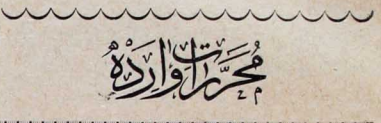 مُحَرَّرَاتِ وَارِدَهْ